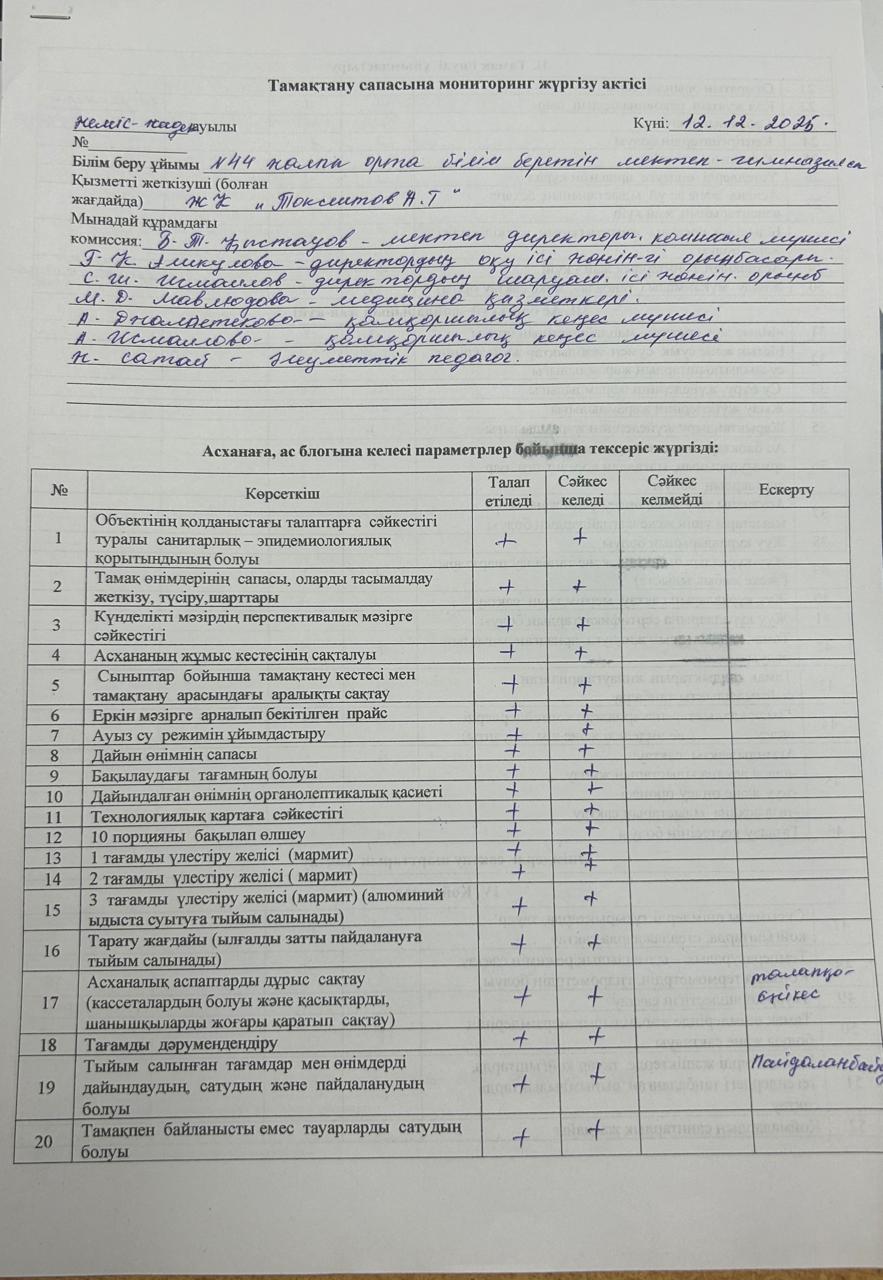 Тамақтану сапасына мониторинг жүргізу актісі
ауылы
Күні: 12. 12. 2025.
№
Білім беру ұйымы N44 жалпы орта білім беретін мектеп-гимназиясы
Қызметті жеткізушi (болған
жағдайда) ЖК „Токсиитов А.Т"
Мынадай құрамдағы
комиссия: Т. Қыстауов - мектеп директоры. комиссия мүшесі
Г. К - директордың оқу ісі жөнін-гі орынбасары.
С. Ш. Исмаилов - директордың шаруаш. ісі жөнін. орынб
М. Д. Мавлюдова - медицина қызметкері.
А. - қамқоршылық кеңес мүшесі
А. Исмаилова - қамқоршылық кеңес мүшесі
Н. Сатай - Әлеуметтік педагог.
Асханаға, ас блогына келесі параметрлер бойынша тексеріс жүргізді:
№ Көрсеткіш Талап етіледі Сәйкес келеді Сәйкес келмейді Ескерту
1 Объектінің қолданыстағы талаптарға сәйкестігі + +
туралы санитарлық – эпидемиологиялық
қорытындының болуы
2 Тамақ өнімдерінің сапасы, оларды тасымалдау + +
жеткізу, түсіру,шарттары
3 Күнделікті мәзірдің перспективалық мәзірге + +
сәйкестігі
4 Асхананың жұмыс кестесінің сақталуы + +
5 Сыныптар бойынша тамақтану кестесі мен + +
тамақтану арасындағы аралықты сақтау
6 Еркін мәзірге арналып бекітілген прайс + +
7 Ауыз су режимін ұйымдастыру + +
8 Дайын өнімнің сапасы + +
9 Бақылаудағы тағамның болуы + +
10 Дайындалған өнімнің органолептикалық қасиеті + +
11 Технологиялық картаға сәйкестігі + +
12 10 порцияны бақылап өлшеу + +
13 1 тағамды үлестіру желісі (мармит) + +
14 2 тағамды үлестіру желісі ( мармит) + +
15 3 тағамды үлестіру желісі (мармит) (алюминий + +
ыдыста суытуға тыйым салынады)
16 Тарату жағдайы (ылғалды затты пайдалануға + +
тыйым салынады)
17 Асханалық аспаптарды дұрыс сақтау + + талапқа-
(кассеталардың болуы және қасықтарды, сәйкес
шанышқыларды жоғары қаратып сақтау)
18 Тағамды дәрумендендіру + +
19 Тыйым салынған тағамдар мен өнімдерді + + Пайдаланбайды
дайындаудың, сатудың және пайдаланудың
болуы
20 Тамақпен байланысты емес тауарларды сатудың + +
болуы